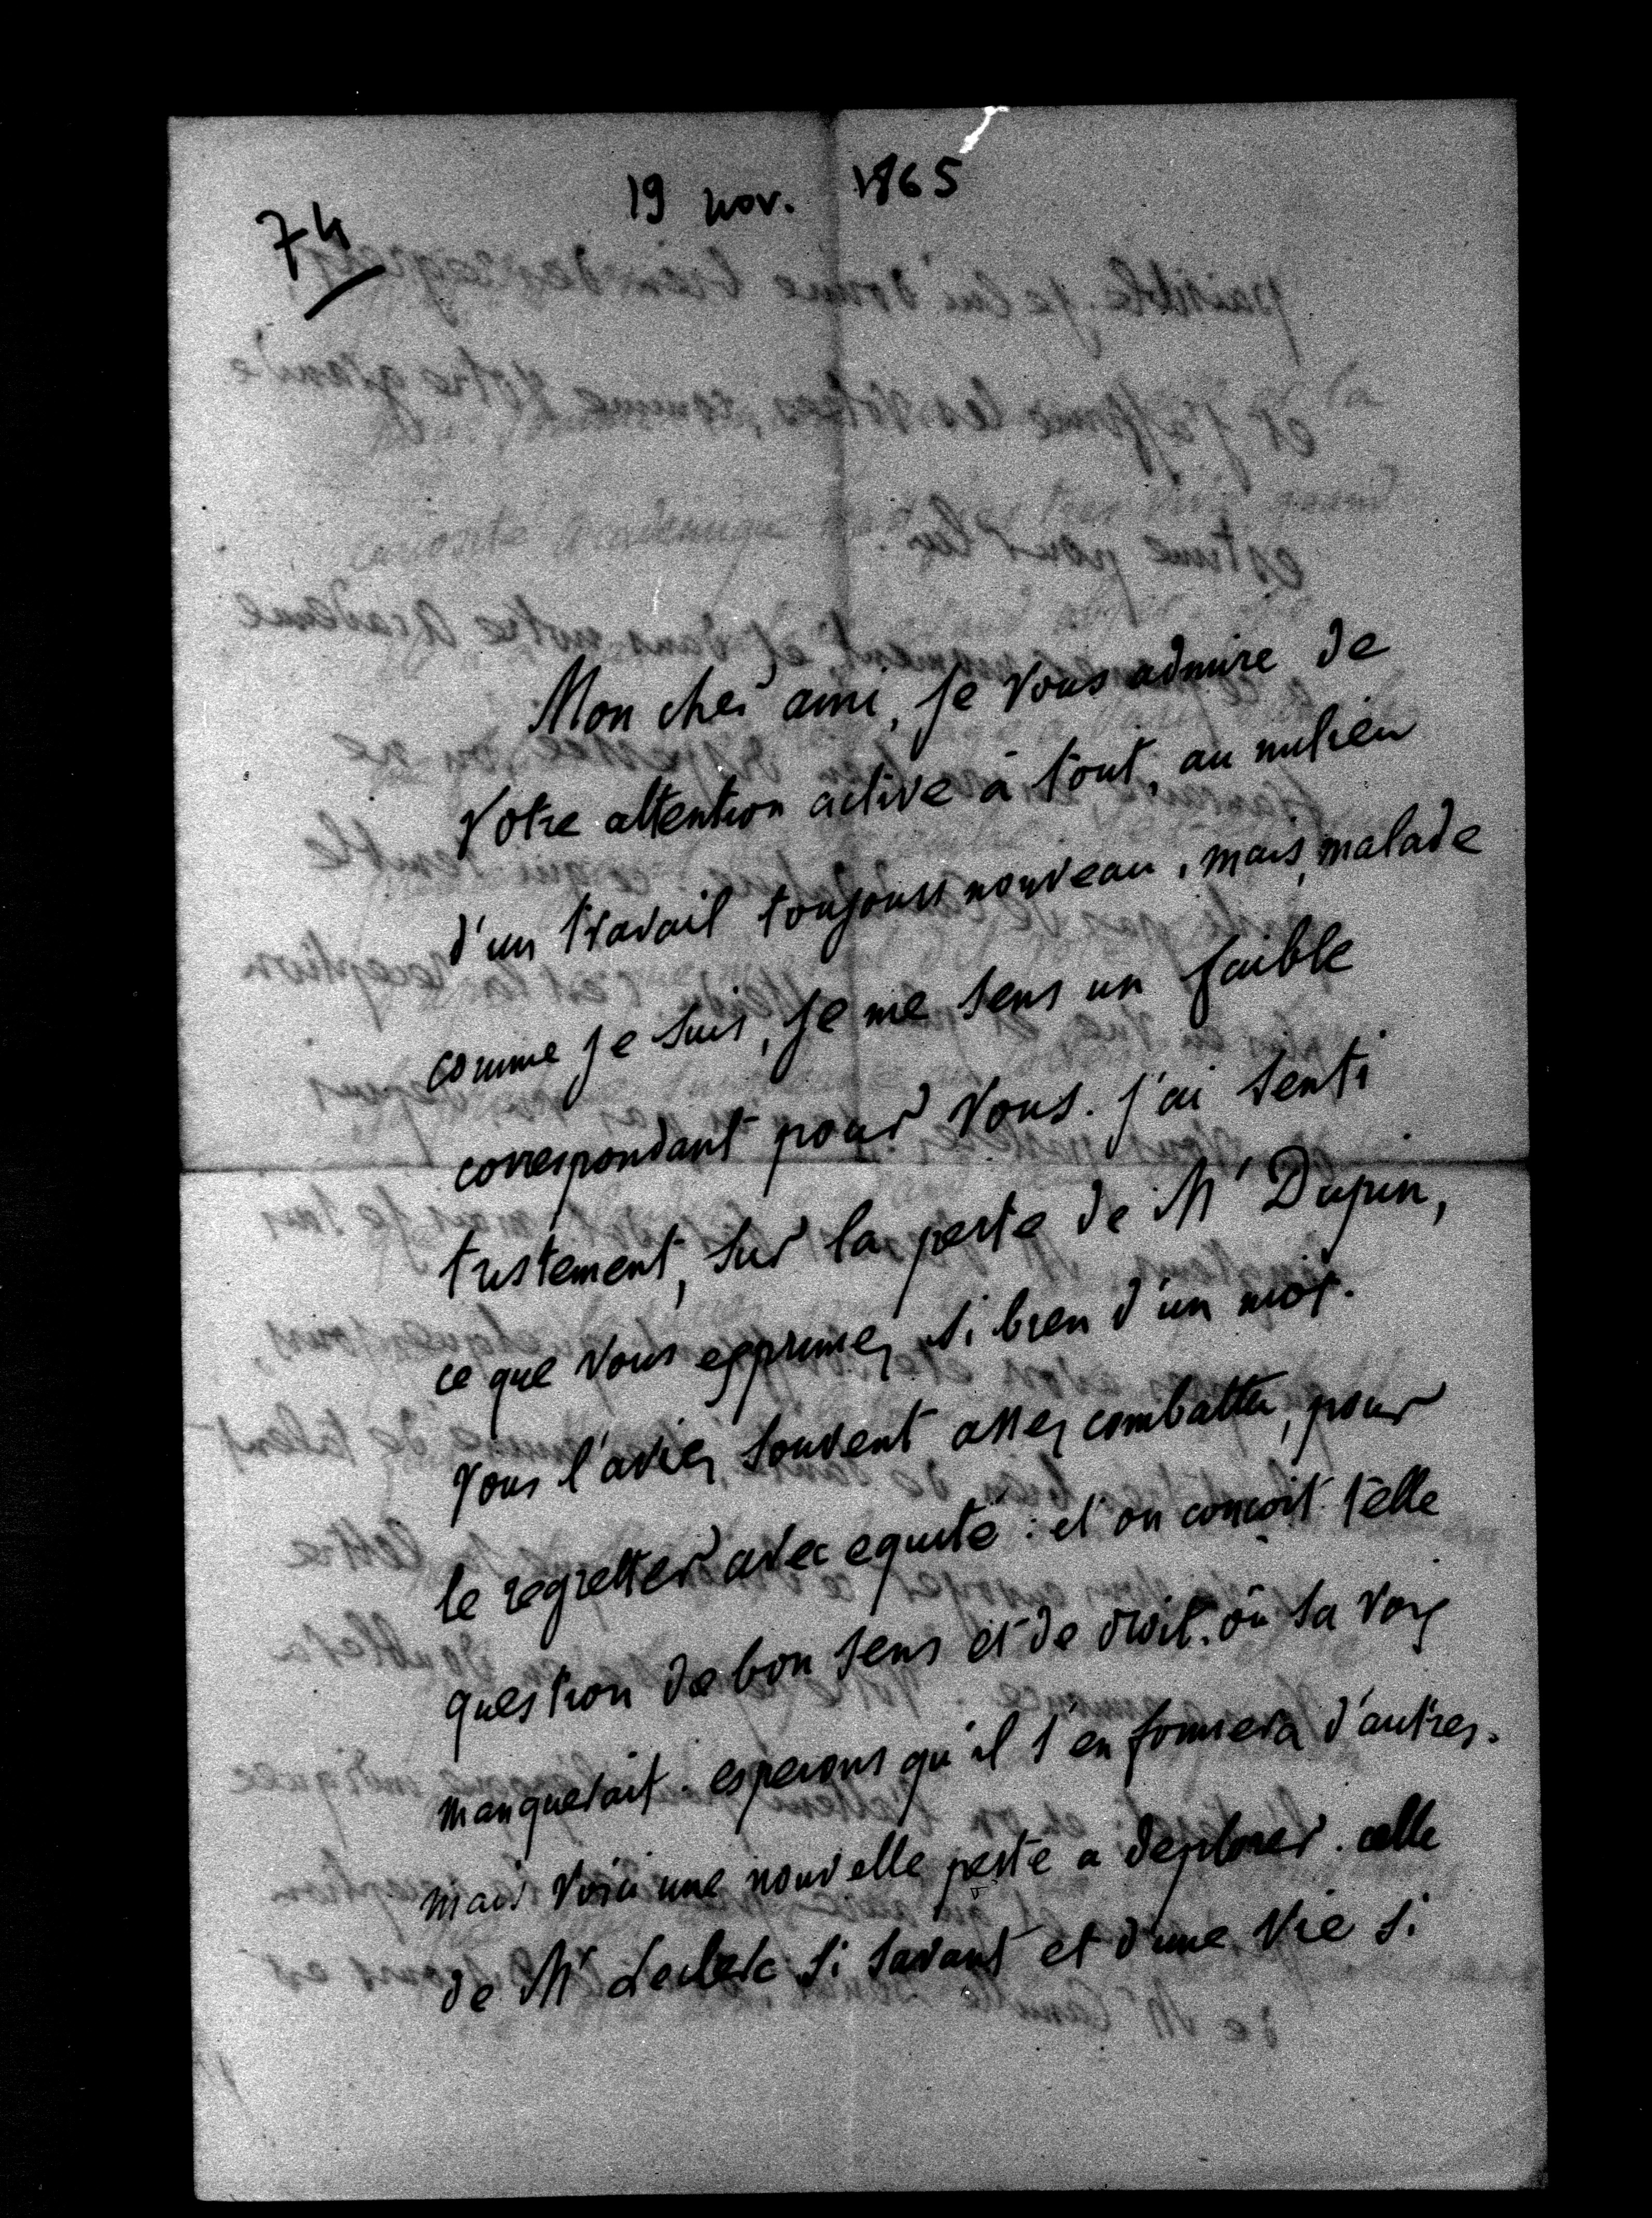 19 nov. 1865
74
Mon cher ami, je vous admire de
votre attention active à tout, au milieu
d'un travail toujours nouveau. mais, malade
comme je suis, je me sens un faible
correspondant pour vous. j'ai senti
tristement, sur la perte de Mr Dupin,
ce que vous exprimez si bien d'un mot.
vous l'aviez souvent assez combattu, pour
le regretter avec equité : et on conçoit telle
question de bon sens et de droit. où sa voix
manquerait. esperons qu'il s'en formera d'autres.
mais voici une nouvelle perte a deplorer. celle
de Mr Leclerc si savant et d'une vie si